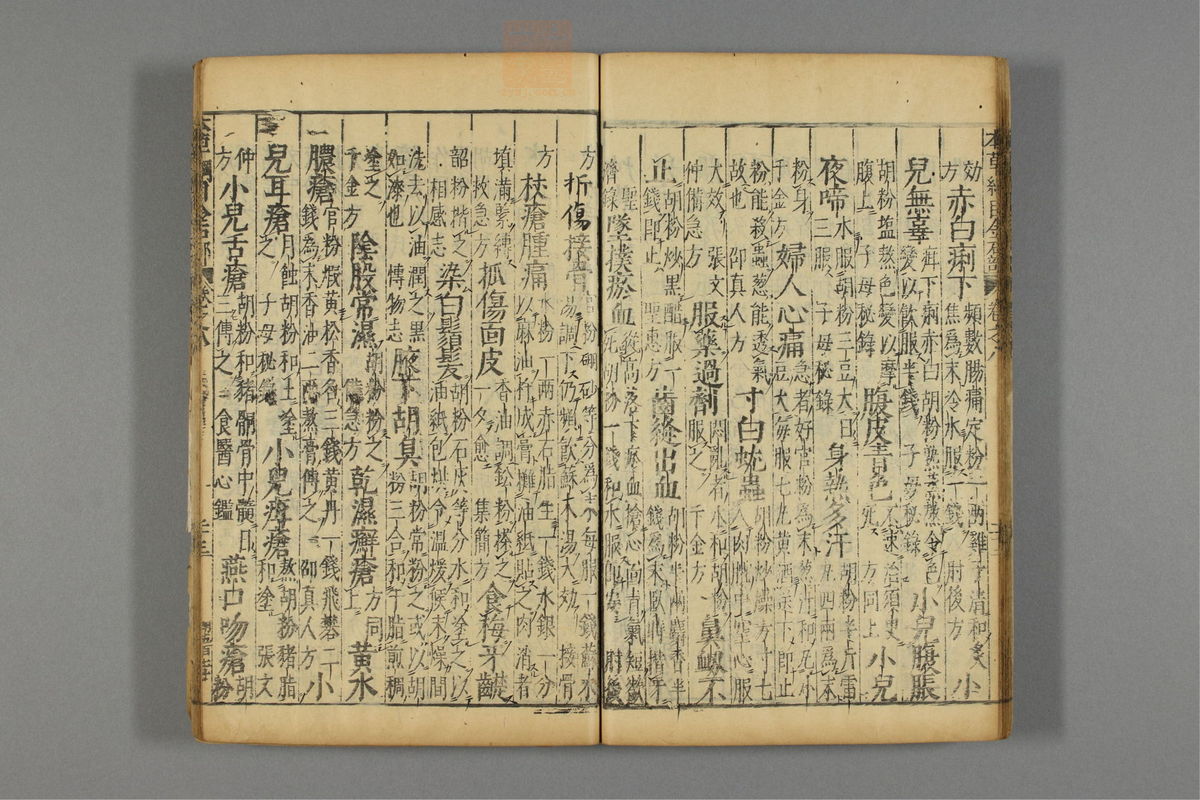 本草綱目金石部
効方 赤白痢下 頻數腸痛定粉一兩雞子清和炙焦爲末冷水服一錢 肘後方 小
兒無辜疳下痢赤白胡粉熟蒸熬令色變以飲服半錢 子母秘錄 小兒腹脹
胡粉塩熬色變以摩腹上 子母秘錄 腹皮青色 不速治須臾死 方同上 小兒
夜啼 水服胡粉三豆大日三服 子母秘錄 身熱多汗 胡粉半斤雷丸四兩爲末
粉身 千金方 婦人心痛 急者好官粉爲末葱汁和丸小豆大每服七丸黃酒送下即止
粉能殺蟲葱能透氣故也 邵真人方 寸白蚘蟲 胡粉炒燥方寸七入肉臛中空心服
大效 張文仲備急方 服藥過劑 悶亂者水和胡粉服之 千金方 鼻衄不
止 胡粉炒黑醋服一錢即止 聖惠方 齒縫出血 胡粉半兩麝香半錢爲末臥時揩牙
聖濟錄 墜撲瘀血 從高落下瘀血搶心面青氣短欲死胡粉一錢和水服即安 肘後
方 折傷接骨 官粉硼砂等分爲末每服一錢蘇木湯調下仍頻飲蘇木湯大効 接骨
方 杖瘡腫痛 水粉一兩赤石脂生一錢水銀一分以麻油杵成膏攤油紙貼之肉消者
填滿緊縛 救急方 抓傷面皮 香油調鉛粉搽之一夕愈 集簡方 食梅牙齼
韶粉揩之 相感志 染白鬚髮 胡粉石灰等分水和塗之以油紙包烘令溫煖候未燥間
洗去以油潤之黑如漆也 博物志 腋下胡臭 胡粉常粉之或以胡粉三合和牛脂煎稠
塗之 千金方 陰股常濕 胡粉粉之 備急方 乾濕癬瘡 方同上 黃水
膿瘡 官粉煅黃松香各三錢黃丹一錢飛礬二錢爲末香油二兩熬膏傅之 邵真人方 小
兒耳瘡 月蝕胡粉和土塗之 子母秘錄 小兒疳瘡 熬胡粉豬脂和塗 張文
仲方 小兒舌瘡 胡粉和豬䯏骨中髓日三傅之 食醫心鑑 燕口吻瘡 胡粉
本草綱目金石部